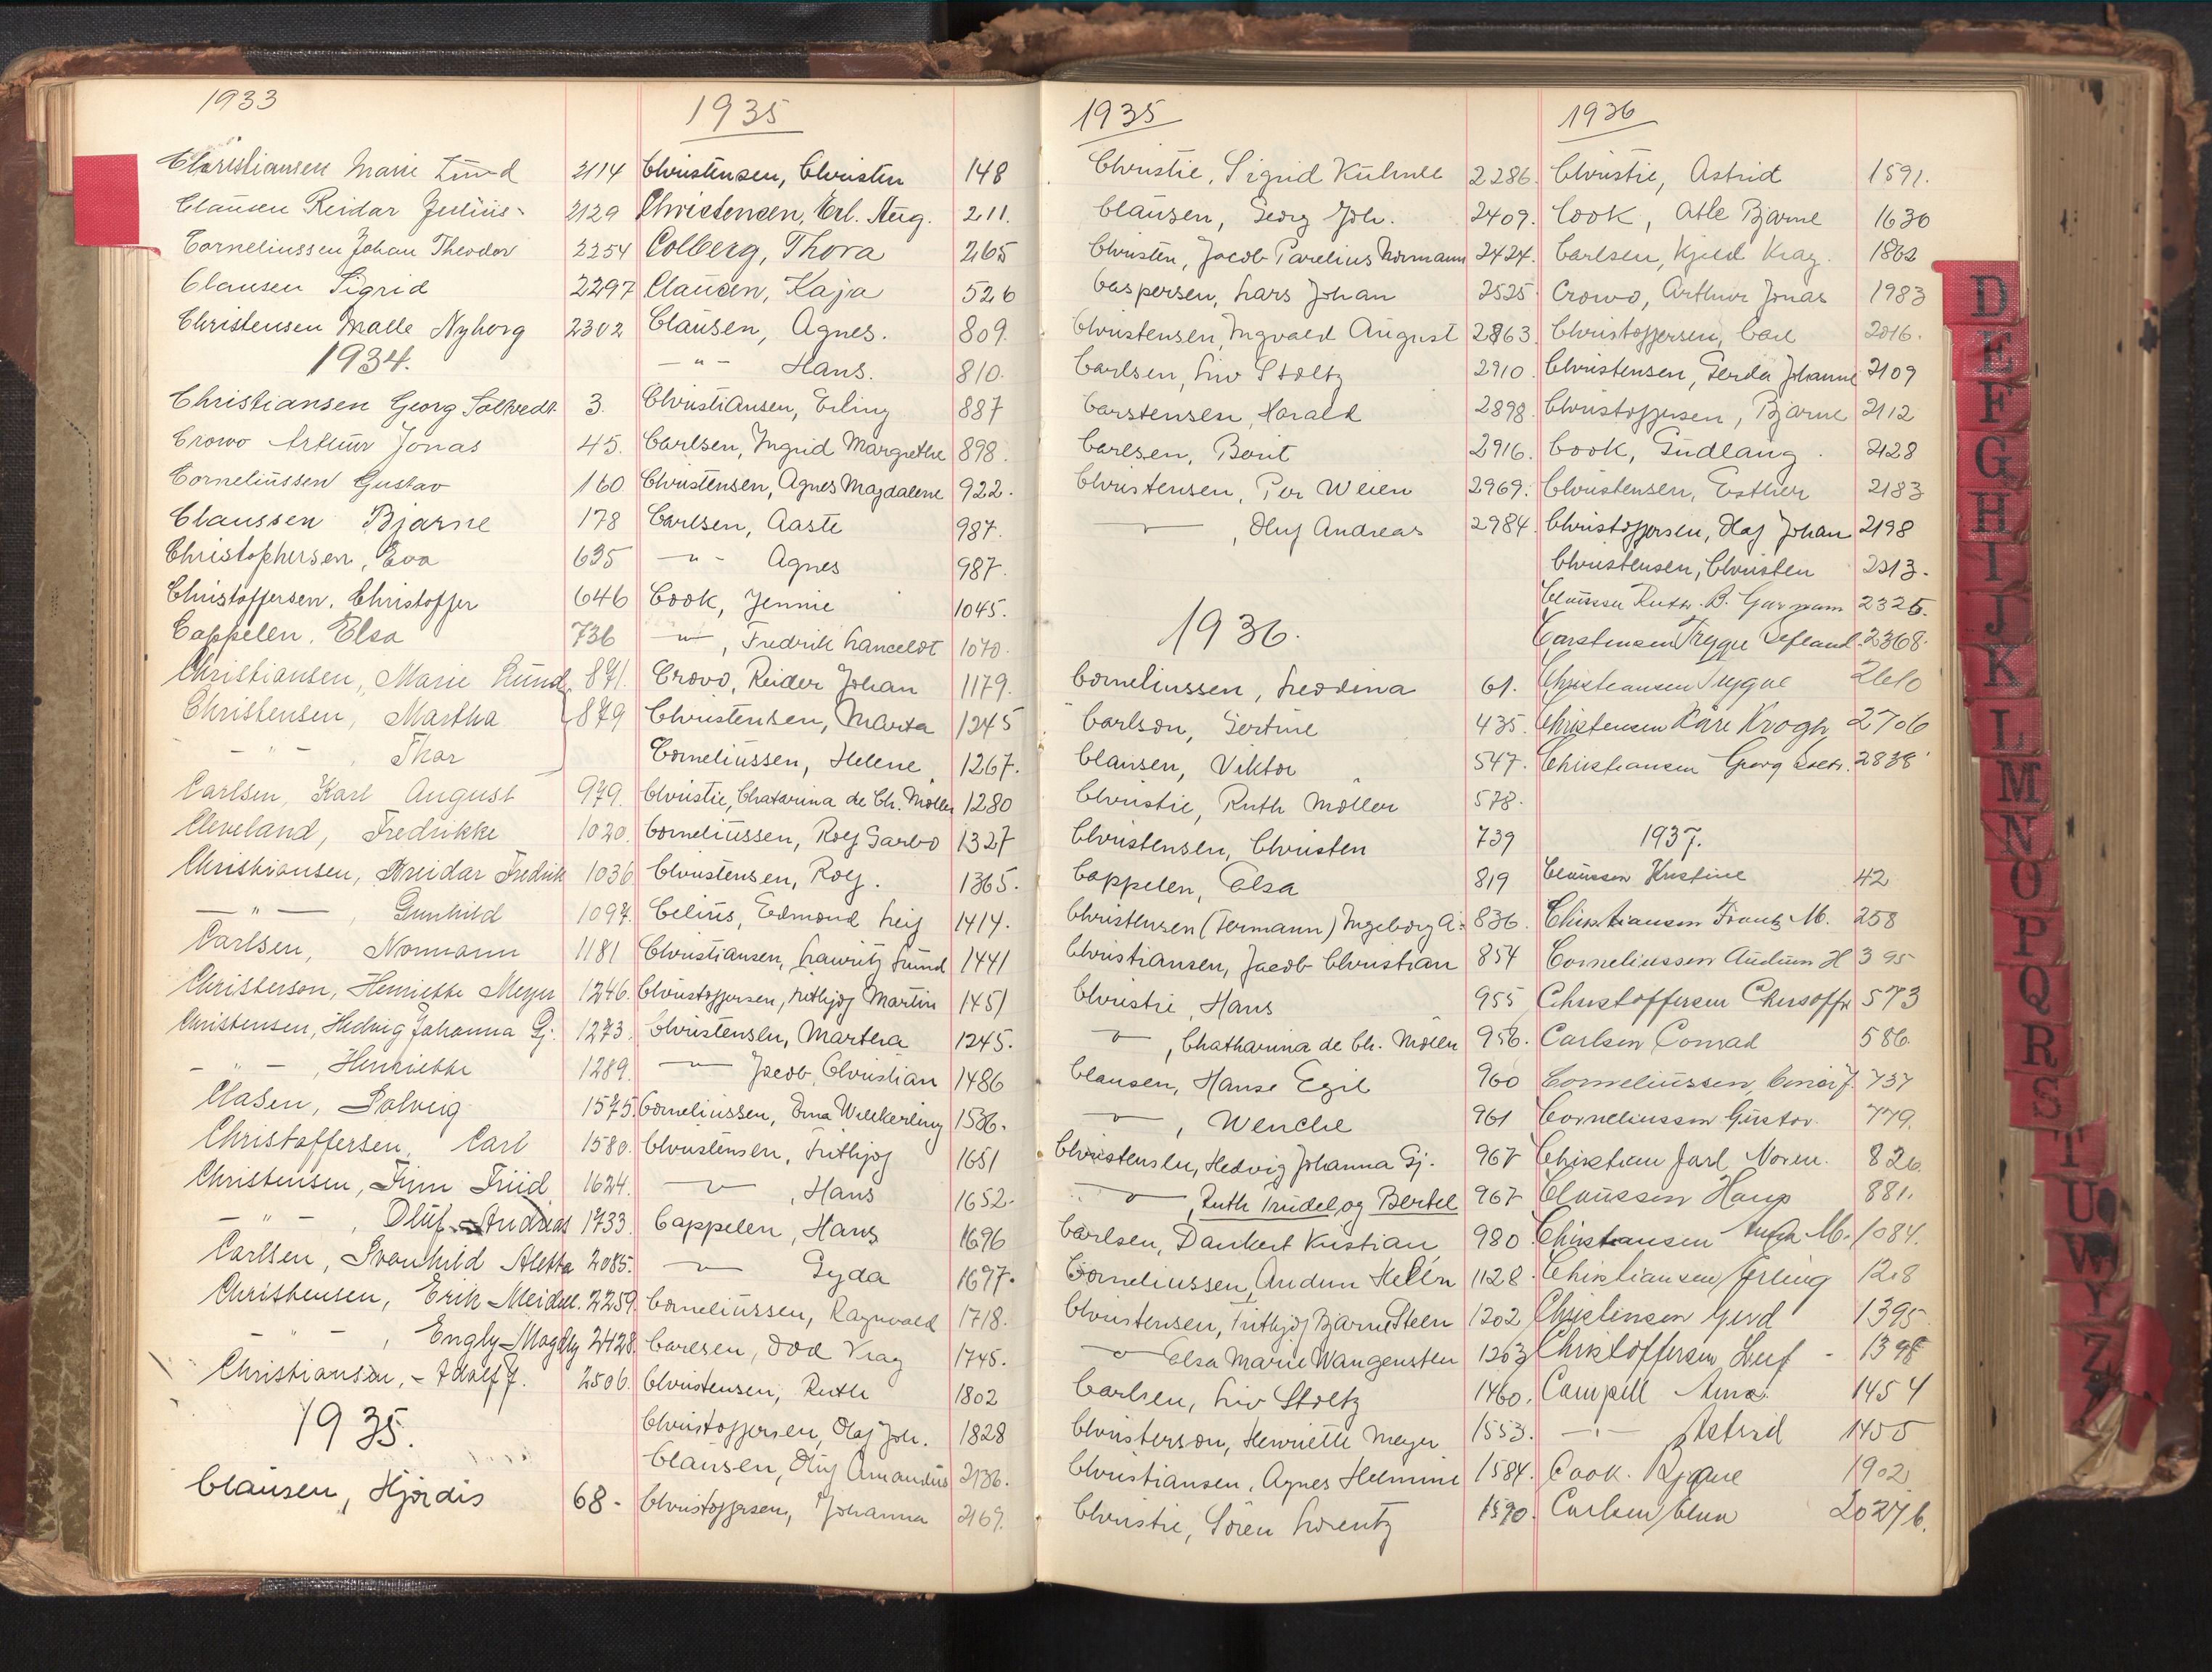 1933
Christiansen Marie Lund 2114
Clausen Reidar Julius 2129
Corneliussen Johan Theodor 2254
Clausen Sigrid 2297
Christensen Malle Nyborg 2302
1934.
Christiansen Georg 3.
Crowo Arthur Jonas 45.
Corneliussen Gustav 160
Claussen Bjarne 178
Christophersen, Eva 635
Christoffersen, Christoffer 646
Cappelen, Elsa 736
Christiansen, Marie Lund 871.
Christensen, Martha 879
— " — , Thor
Carlsen, Karl August 979.
Cleveland, Fredrikke 1020.
Christiansen, Fredrik 1036
— " — , Gunhild 1097.
Carlsen, Normann 1181
Christerson, Henriette Meyer 1246.
Christensen, Hedvig Johanna Gj. 1273.
— " — , Henriette 1289.
Clasen, Solveig 1575.
Christoffersen, Carl 1580.
Christensen, Finn 1624.
— " — , Oluf Andreas 1733.
Carlsen, Svanhild Aletta 2085.
Christensen, Erik Meidell. 2259.
— " — , Engly Magdly 2428.
Christiansen, Adolf J. 2506.
1935.
Clausen, Hjørdis 68 -
1935
Christensen, Christen 148
Christensen, Erl. Aug. 211.
Colberg, Thora 265
Clausen, Kaja 526
Clausen, Agnes. 809.
— " — Hans. 810.
Christiansen, Erling 887
Carlsen, Ingrid Margrethe 898.
Christensen, Agnes Magdalene 922.
Carlsen, Aaste 987.
— " — Agnes 987.
Cook, Jennie 1045.
— " — , Fredrik Lanceldt 1070.
Crovo, Reider Johan 1179.
Christensen, Marta 1245
Corneliussen, Helene 1267.
Christie, Chatarina de Ch. Møller 1280
Corneliussen, Rolf Garbo 1327
Christensen, Rolf. 1365.
Celius, Edmond Leif 1414.
Christiansen, Lauritz Lund 1441
Christoffersen, Fritjof Martin 1451
Christensen, Martha 1245.
— " — Jacob Christian 1486
Corneliussen, Erna 1586.
Christensen, Frithjof 1651
— " — , Hans 1652.
Cappelen, Hans 1696
— " — Gyda 1697.
Corneliussen, Ragnvald 1718.
Carlsen, Odd Krag 1745.
Christensen, Ruth 1802
Christoffersen, Olaf Joh. 1828
Clausen, Oluf Amandus 2136.
Christoffersen, Johanna 2169.
1935
Christie, Sigrid Kühnle 2286.
Clausen, Georg Joh. 2409.
Christen, Jacob Parelius Normann 2424.
Caspersen, Lars Johan 2525.
Christensen, Ingvald August 2863.
Carlsen, Liv Stoltz 2910.
Carstensen, Harald 2898.
Carlsen, Borit 2916.
Christensen, Per Weien 2969.
— " — , Oluf Andreas 2984.
1936.
Corneliussen, Leodina 61.
Carlson, Gertine 435.
Clausen, Viktor 547.
Christie, Ruth Møller 578.
Christensen, Christen 739
Cappelen, Elsa 819
Christensen (Termann) Ingeborg A. 836.
Christiansen, Jacob Christian 854
Christie, Hans 955
— " — , Chatharina de Ch. Møller 956.
Clausen, Hanse Egil 960
— " — , Wenche 961
Christensen, Hedvig Johanna Gj. 967
— " — , Ruth Trudel og Bertel 967
Carlsen, Dankert Kristian 980.
Corneliussen, Audun Helèn 1128.
Christensen, Frithjof Bjarne Steen 1202
— " — Elsa Marie Wangensten 1203
Carlsen, Liv Stoltz 1460.
Christerson, Henriette Meyer 1553.
Christiansen, Agnes Helmine 1584.
Christie, Sören Lorentz 1590.
1936
Christie, Astrid 1591.
Cook, Atle Bjarne 1630
Carlsen, Kjeld Krag. 1862
Crowo, Arthur Jonas 1983
Christoffersen, Carl 2016.
Christensen, Gerda Johanne 2109
Christoffersen, Bjarne 2112
Cook, Gudlaug. 2128
Christensen, Esther 2183
Christoffersen, Olaf Johan 2198
Christensen, Christen 2213.
Claussen Ruth. B. Garmann 2325.
Carstensen Trygve 2368.
Christiansen Trygve 2610
Christensen Kåre Krogh 2706
Christiansen Georg 2838
1937.
Claussen Kristine 42
Christiansen Frantz M. 258
Corneliussen Audun H 395
Christoffersen Christoffer 573
Carlsen Conrad 586.
Corneliussen, Einar J. 737
Corneliussen Gustav. 779.
Christian Jarl 826.
Claussen Haup 881.
Christiansen M. 1084.
Christiansen Erling 1218
Christensen Gerd 1395
Christoffersen Leif - 1398
Campell Anna. 1454
— " — Astrid 1455
Cook. Bjarne 1902
Carlsen 20276.
D
E
F
G
H
I
J
K
L
M
N
O
P
Q
R
S
T
U
W
Y
Z